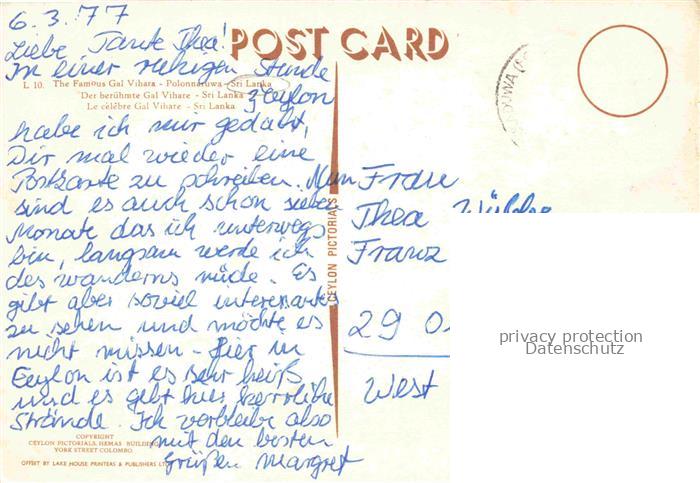 6.3.77
Liebe Tante Thea!
POST CARD
In einer ruhigen Stunde
L 10. The Famous Gal Vihara - Polonnaruwa - Sri Lanka
Der berühmte Gal Vihare - Sri Lanka
Le célèbre Gal Vihare - Sri Lanka
Zeylon
habe ich mir gedacht,
Dir mal wieder eine
Postkarte zu schreiben. Nun
sind es auch schon sieben
Monate das ich unterwegs
bin, langsam werde ich
des wanderns müde. Es
gibt aber soviel interessantes
zu sehen und möchte es
nicht missen - Hier in
Ceylon ist es sehr heiß
und es gibt hier herrliche
Strände. Ich verbleibe also
mit den besten
Grüßen Margret
COPYRIGHT
CEYLON PICTORIALS, HEMAS BUILDING
YORK STREET COLOMBO.
OFFSET BY LAKE HOUSE PRINTERS & PUBLISHERS LT
CEYLON PICTORIALS
Frau
Thea
Franz
29 O
West
privacy protection
Datenschutz